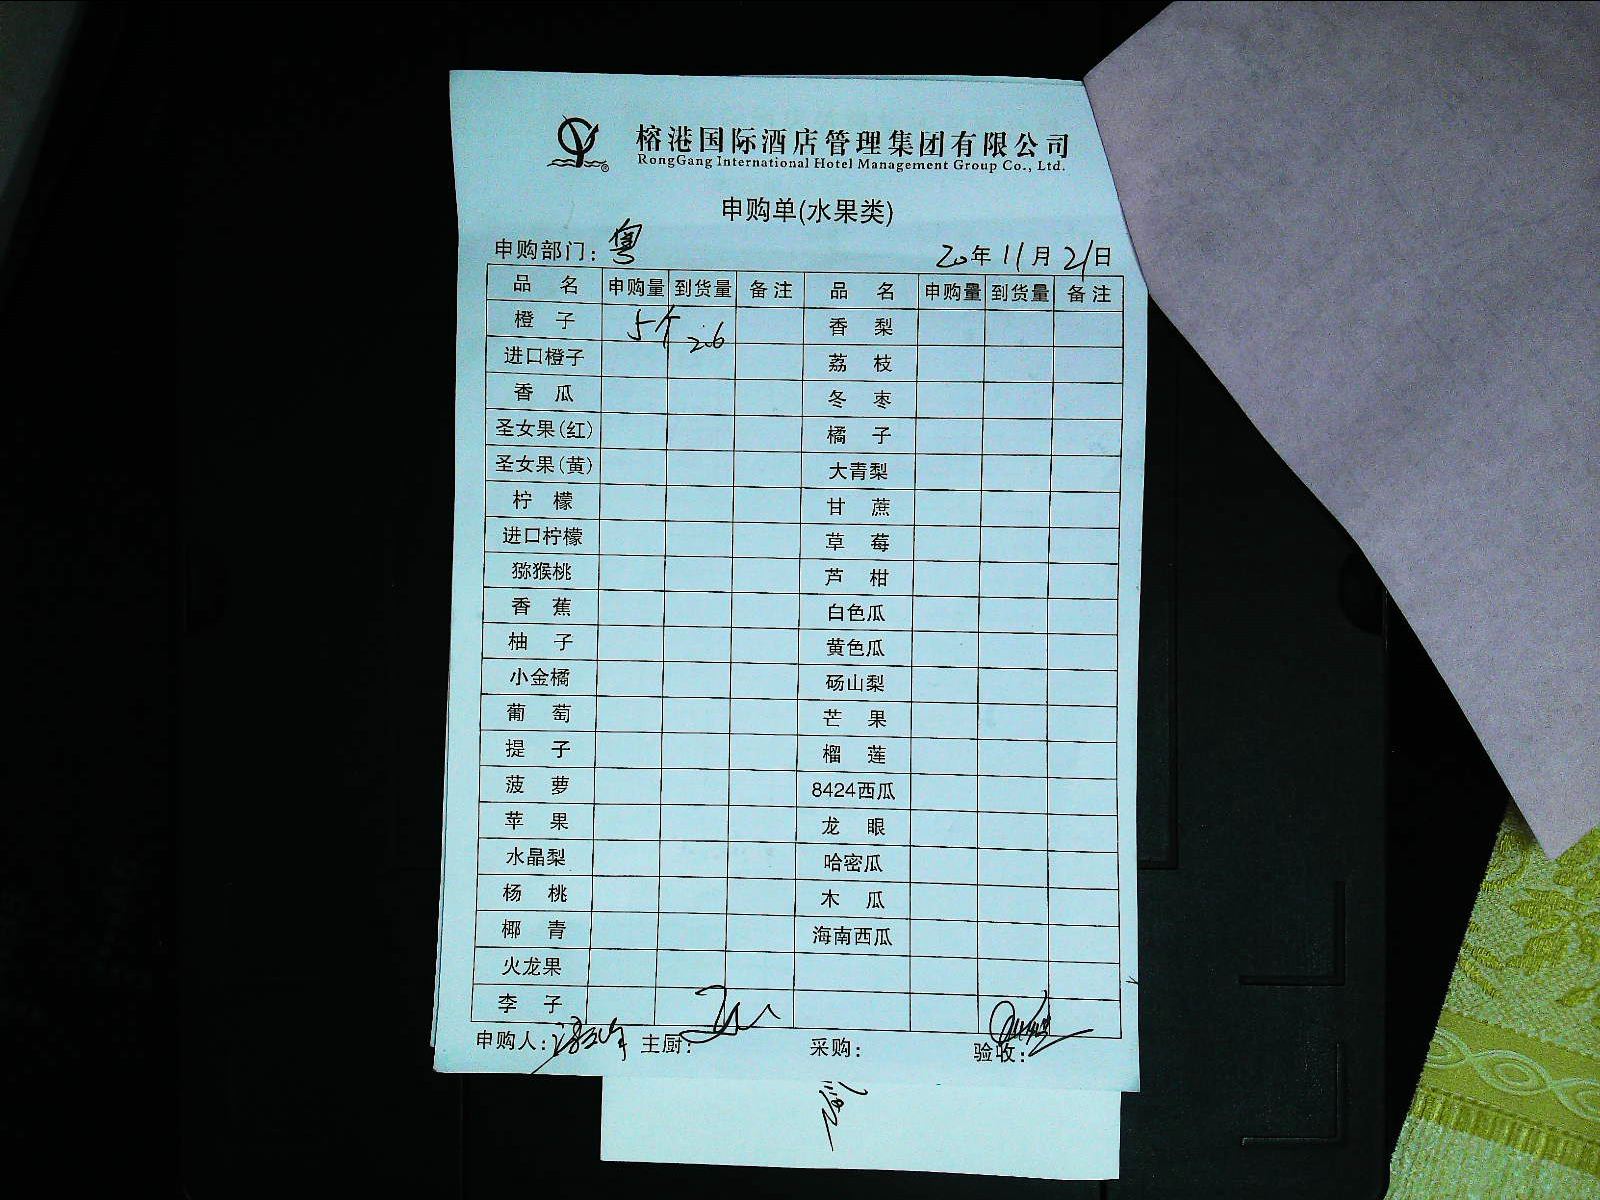 榕港国际酒店管理集团有限公司
RongGang International Hotel Management Group Co., Ltd.
申购单(水果类)
申购部门: 粤 20年11月21日
品 名 申购量 到货量 备注 品 名 申购量 到货量 备注
橙 子 5个 2.6 香 梨
进口橙子 荔 枝
香 瓜 冬 枣
圣女果(红) 橘 子
圣女果(黄) 大青梨
柠 檬 甘 蔗
进口柠檬 草 莓
猕猴桃 芦 柑
香 蕉 白色瓜
柚 子 黄色瓜
小金橘 砀山梨
葡 萄 芒 果
提 子 榴 莲
菠 萝 8424西瓜
苹 果 龙 眼
水晶梨 哈密瓜
杨 桃 木 瓜
椰 青 海南西瓜
火龙果
李 子
申购人: 主厨: 采购: 验收: